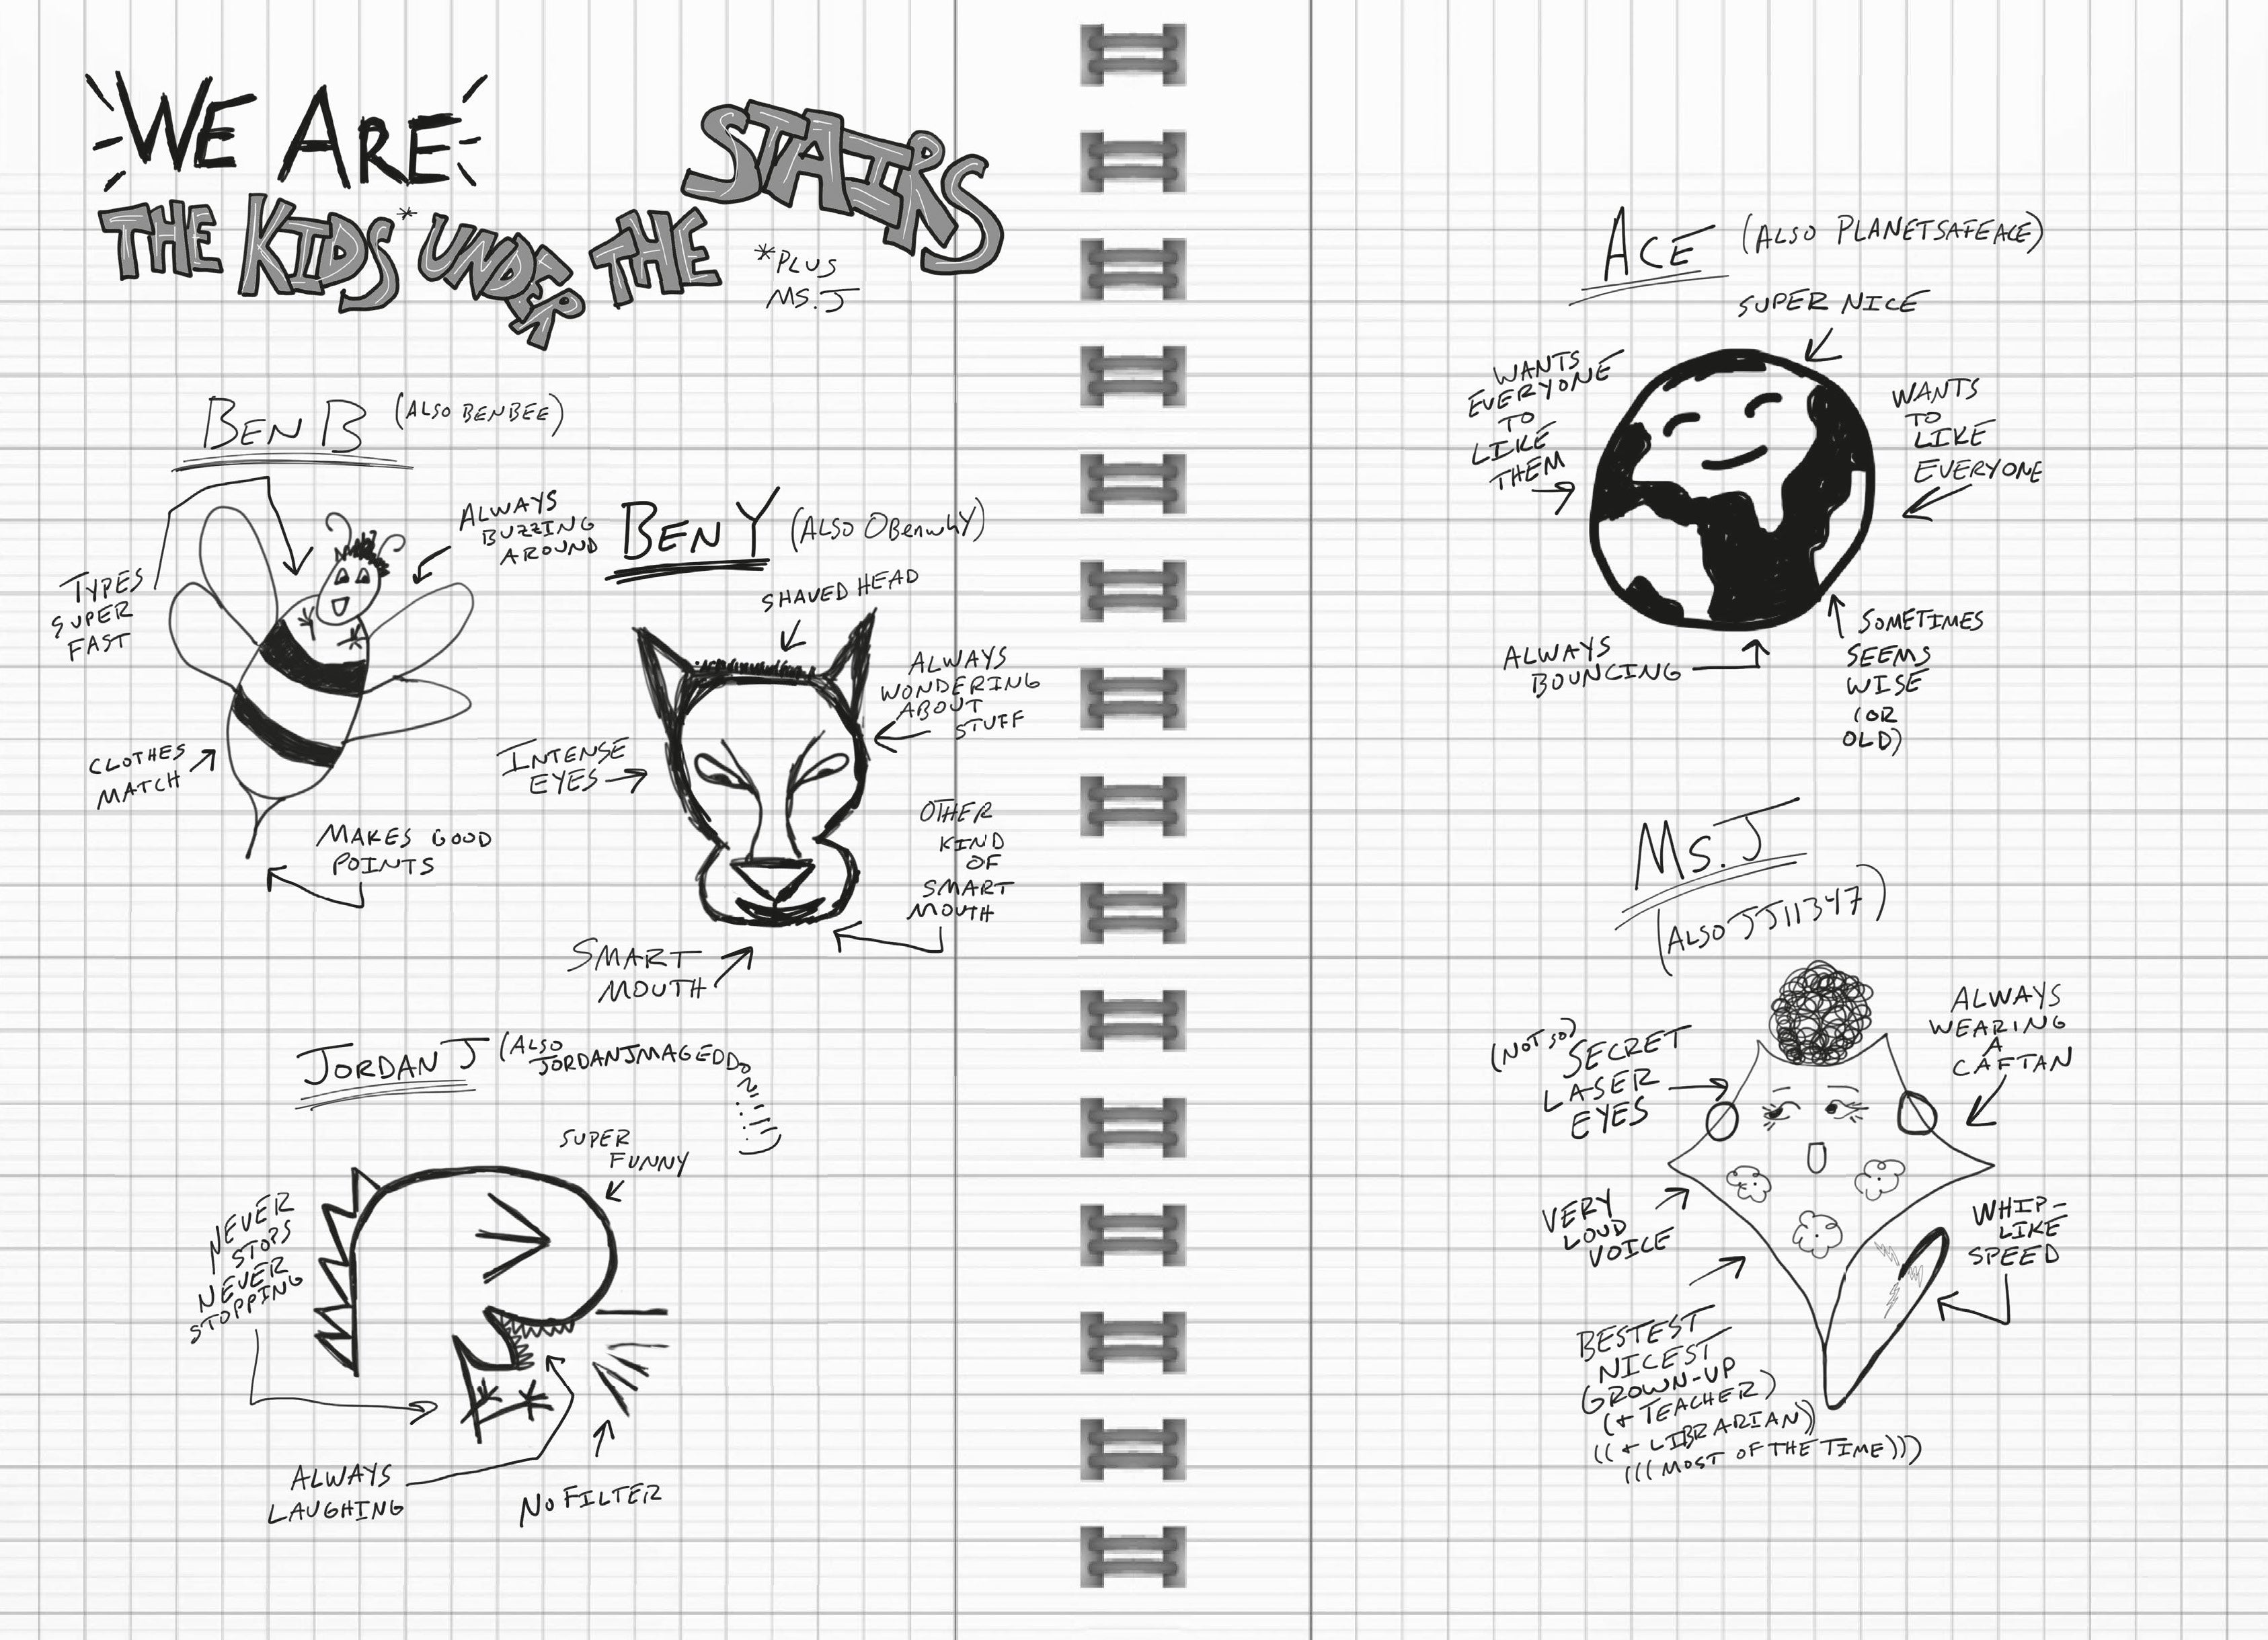 WE ARE
THE KIDS* UNDER THE STAIRS
*PLUS
MS. J
BEN B (ALSO BENBEE)
TYPES
SUPER
FAST
ALWAYS
BUZZING
AROUND
CLOTHES
MATCH
MAKES GOOD
POINTS
BEN Y (ALSO OBenwhY)
SHAVED HEAD
ALWAYS
WONDERING
ABOUT
STUFF
INTENSE
EYES
OTHER
KIND
OF
SMART
MOUTH
SMART
MOUTH
JORDAN J (ALSO
JORDANJMAGEDDON!!!!)
SUPER
FUNNY
NEVER
STOPS
NEVER
STOPPING
ALWAYS
LAUGHING
NO FILTER
ACE (ALSO PLANETSAFEACE)
SUPER NICE
WANTS
EVERYONE
TO
LIKE
THEM
WANTS
TO
LIKE
EVERYONE
ALWAYS
BOUNCING
SOMETIMES
SEEMS
WISE
(OR
OLD)
MS. J
(ALSO JJ11347)
(NOT SO) SECRET
LASER
EYES
ALWAYS
WEARING
A
CAFTAN
VERY
LOUD
VOICE
WHIP-
LIKE
SPEED
BESTEST
NICEST
GROWN-UP
(+ TEACHER)
((+ LIBRARIAN))
(((MOST OF THE TIME)))